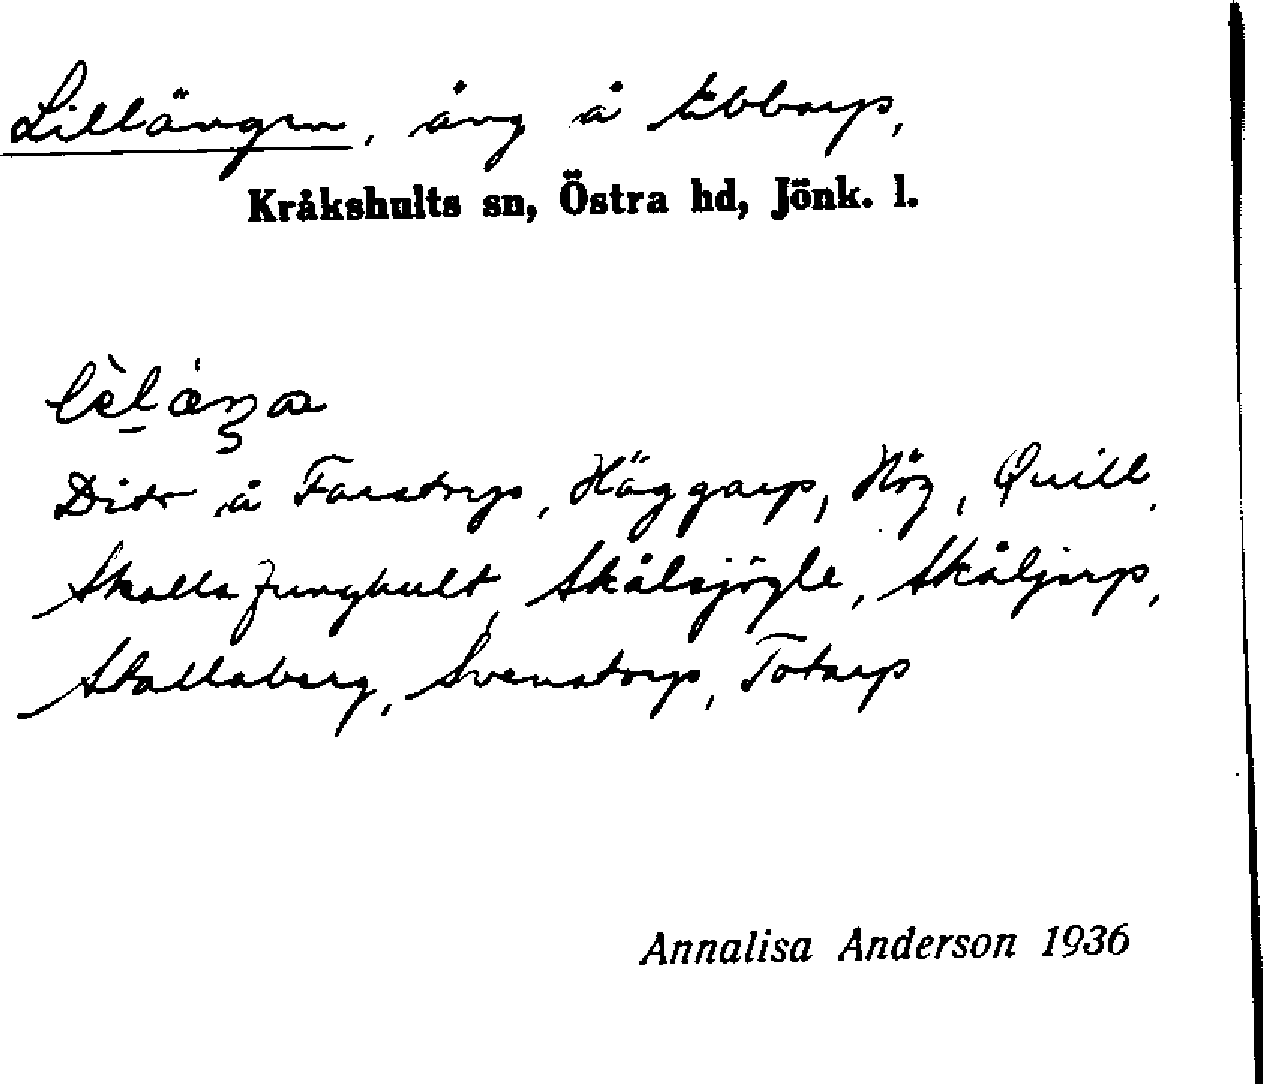 Lillängen, äng å Ebbarp,
Kråkshults sn, Östra hd, Jönk. l.
Dito å Farstorp, Häggarp, Hög, Quill,
Skalla Ljunghult, Skålsjögle, Skåljarp,
Stallaberg, Svenstorp, Totarp
Annalisa Anderson 1936